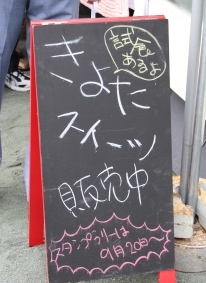 試食
あるよ
きよた
スイーツ
販売中
スタンプラリーは
9月20日〜